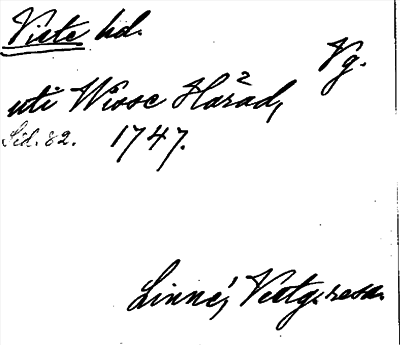 Viste hd.
Vg.
uti Wisse Härad,
Sid. 82. 1747.
Linné, Vestg. resa.